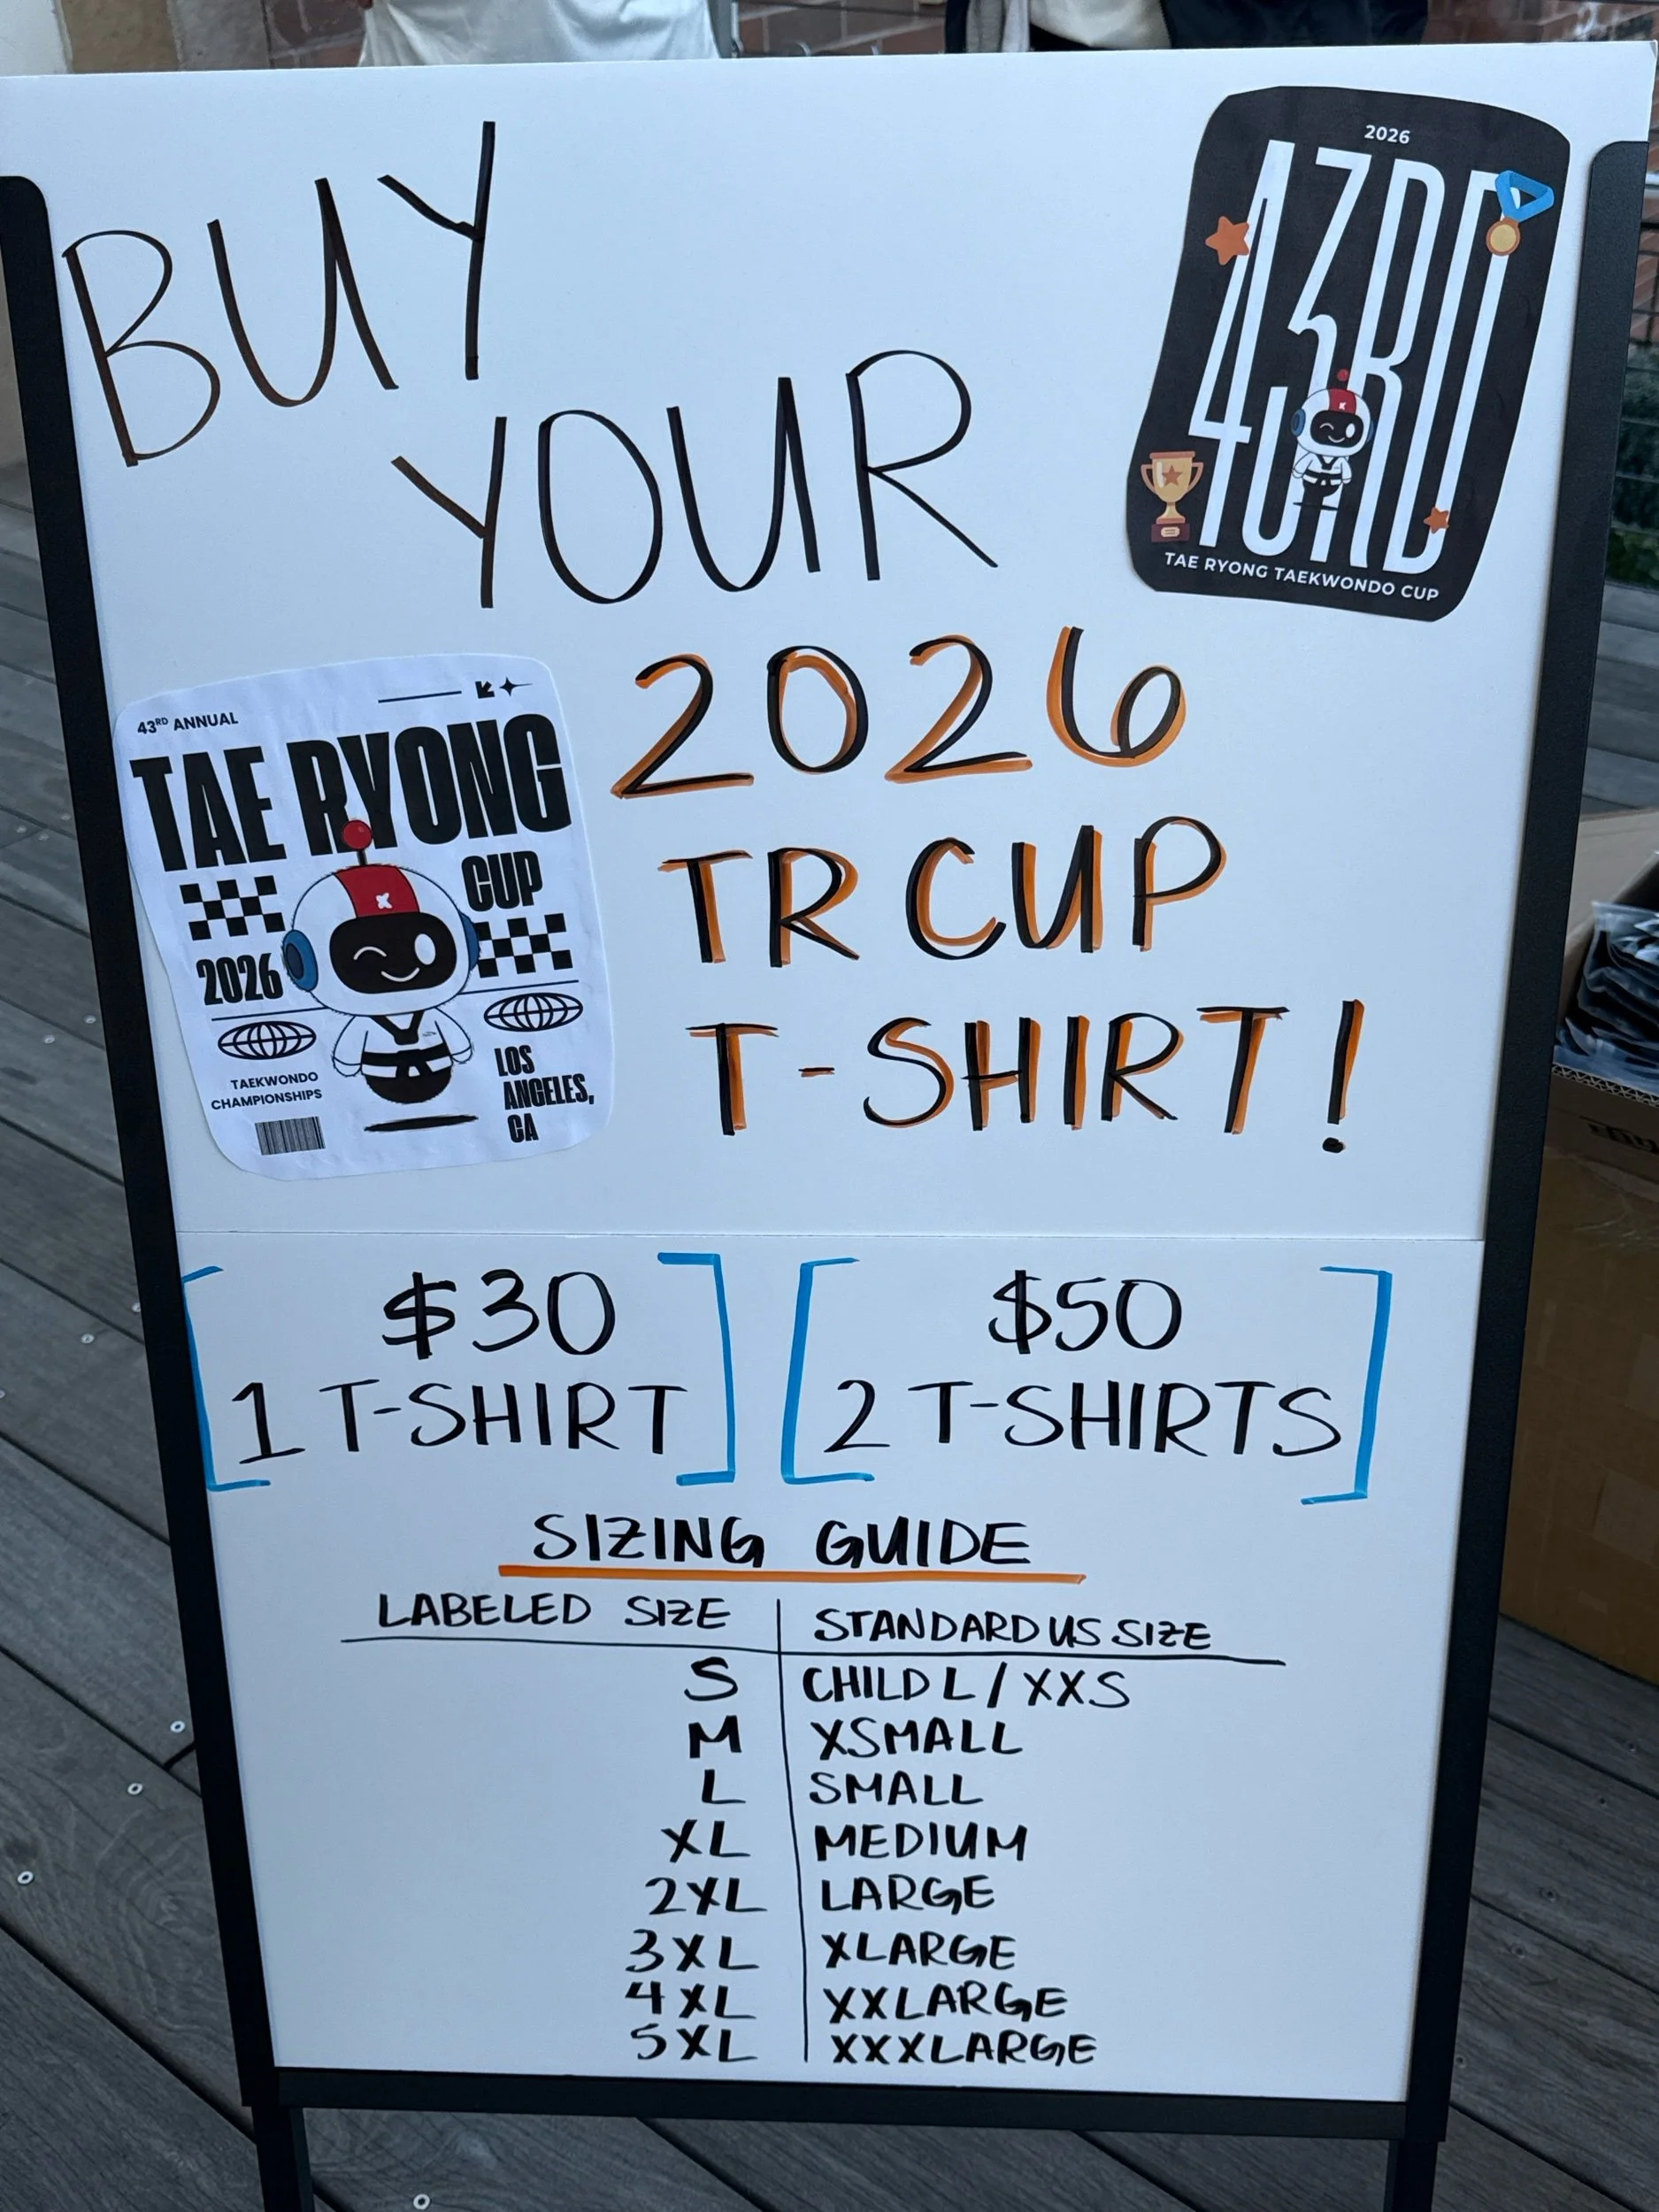 BUY
YOUR
2026
TR CUP
T-SHIRT!
2026
43RD
TAE RYONG TAEKWONDO CUP
43RD ANNUAL
TAE RYONG
CUP
2026
TAEKWONDO
CHAMPIONSHIPS
LOS
ANGELES,
CA
$30
1 T-SHIRT
$50
2 T-SHIRTS
SIZING GUIDE
LABELED SIZE STANDARD US SIZE
S CHILD L / XXS
M XSMALL
L SMALL
XL MEDIUM
2XL LARGE
3XL XLARGE
4XL XXLARGE
5XL XXXLARGE